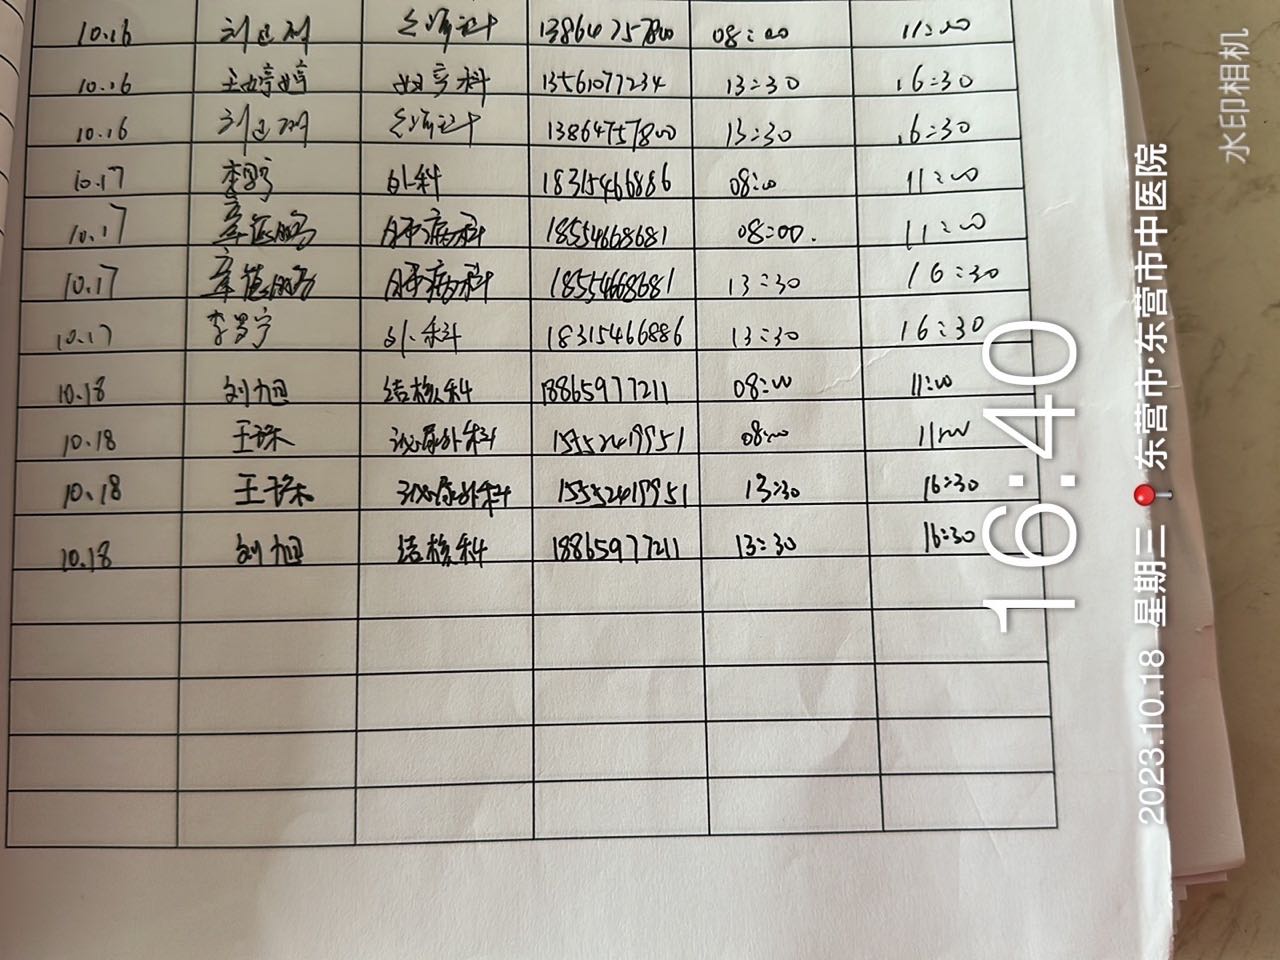 10.16 08:00 11:00
10.16 王婷婷 妇产科 13561077234 13:30 16:30
10.16 13864757800 13:30 16:30
10.17 外科 18315466886 08:00 11:00
10.17 肺病科 18554668681 08:00. 11:00
10.17 肺病科 18554668681 13:30 16:30
10.17 外科 18315466886 13:30 16:30
10.18 刘旭 结核科 18865977211 08:00 11:00
10.18 王珠 泌尿外科 08:00 11:00
10.18 王珠 泌尿外科 13:30 16:30
10.18 刘旭 结核科 18865977211 13:30 16:30
16:40
2023.10.18 星期三 东营市·东营市中医院
水印相机